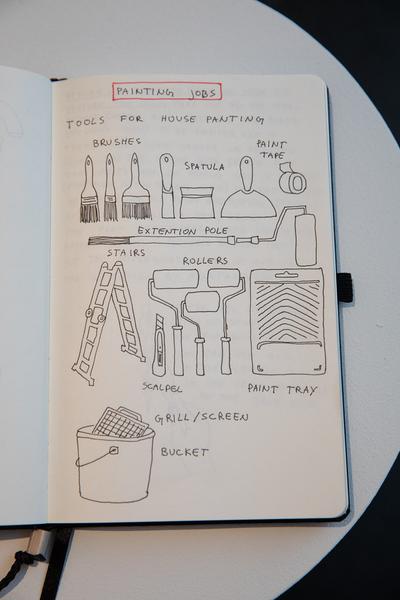 PAINTING JOBS
TOOLS FOR HOUSE PANTING
BRUSHES
SPATULA
PAINT
TAPE
EXTENTION POLE
STAIRS
ROLLERS
SCALPEL
PAINT TRAY
GRILL/SCREEN
BUCKET